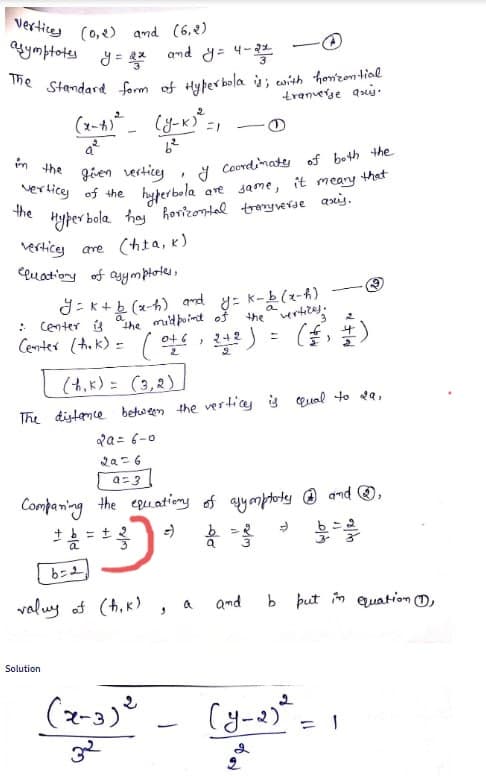 Vertices (0,2) and (6,2)
asymptotes y = 2x/3 and y = 4-2x/3 — Ⓐ
The standard form of Hyperbola is; with horizontial
tranverse axis.
(x-h)²/a² - (y-k)²/b² = 1 — ①
in the given vertices, y coordinates of both the
vertices of the hyperbola are same, it means that
the Hyperbola has horizontal tranverse axis.
vertices are (h±a, k)
equations of asymptotes,
y = k + b/a (x-h) and y = k - b/a (x-h) — ②
∴ Center is the midpoint of the vertices.
Center (h,k) = (0+6/2, 2+2/2) = (6/2, 4/2)
(h,k) = (3,2)
The distance between the vertices is equal to 2a,
2a = 6-0
2a = 6
a = 3
Comparing the equations of asymptotes Ⓐ and ②,
± b/a = ± 2/3 ⇒ b/a = 2/3 ⇒ b/3 = 2/3
b = 2
values of (h,k), a and b put in equation ①,
Solution
(x-3)²/3² - (y-2)²/2² = 1